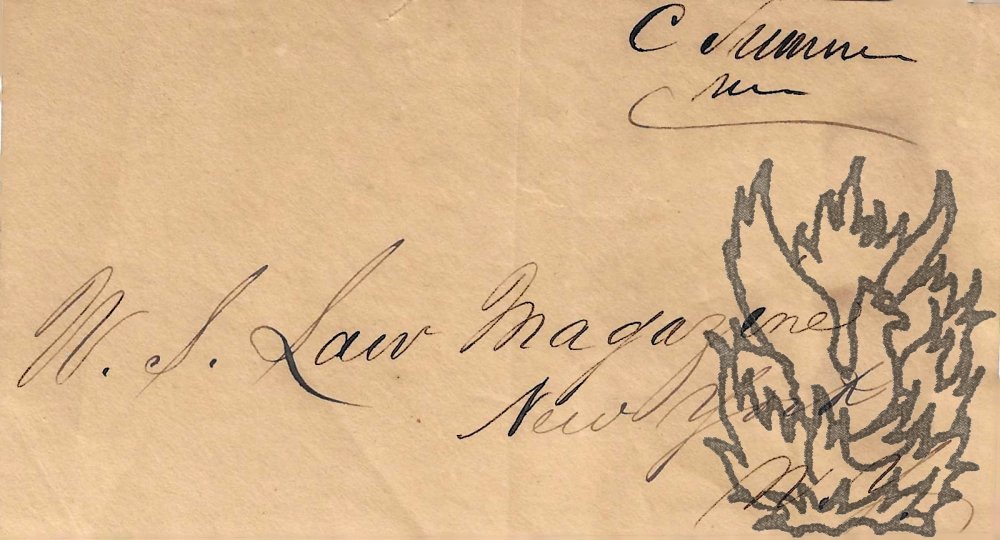 C Sumner
U. S. Law Magazine
New York
N. Y.